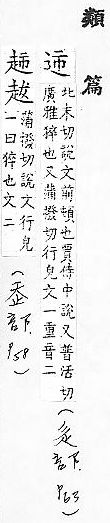 類篇
北末切說文前頓也賈侍中說又普活切
廣雅猝也又蒲撥切行皃文一重音二
(辵部下 P63)
蒲撥切說文行皃
一曰猝也文二
(走部下 P58)